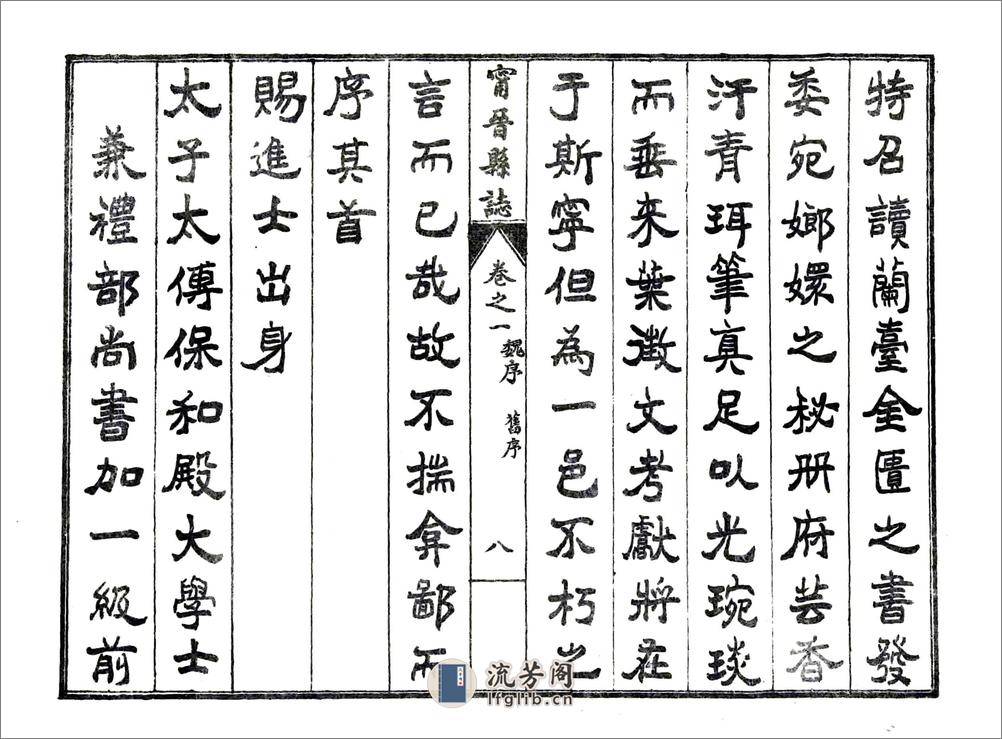 特召讀蘭臺金匱之書發
委宛嫏嬛之秘册府芸香
汗青珥筆真足㕥光琬琰
而垂来葉徵文考獻將在
于斯寧但為一邑不朽之
甯晉縣誌 卷之一 魏序 舊序 八
言而已哉故不揣弇鄙而
序其首
賜進士出身
太子太傅保和殿大學士
兼禮部尚書加一級前
流芳阁
lfglib.cn